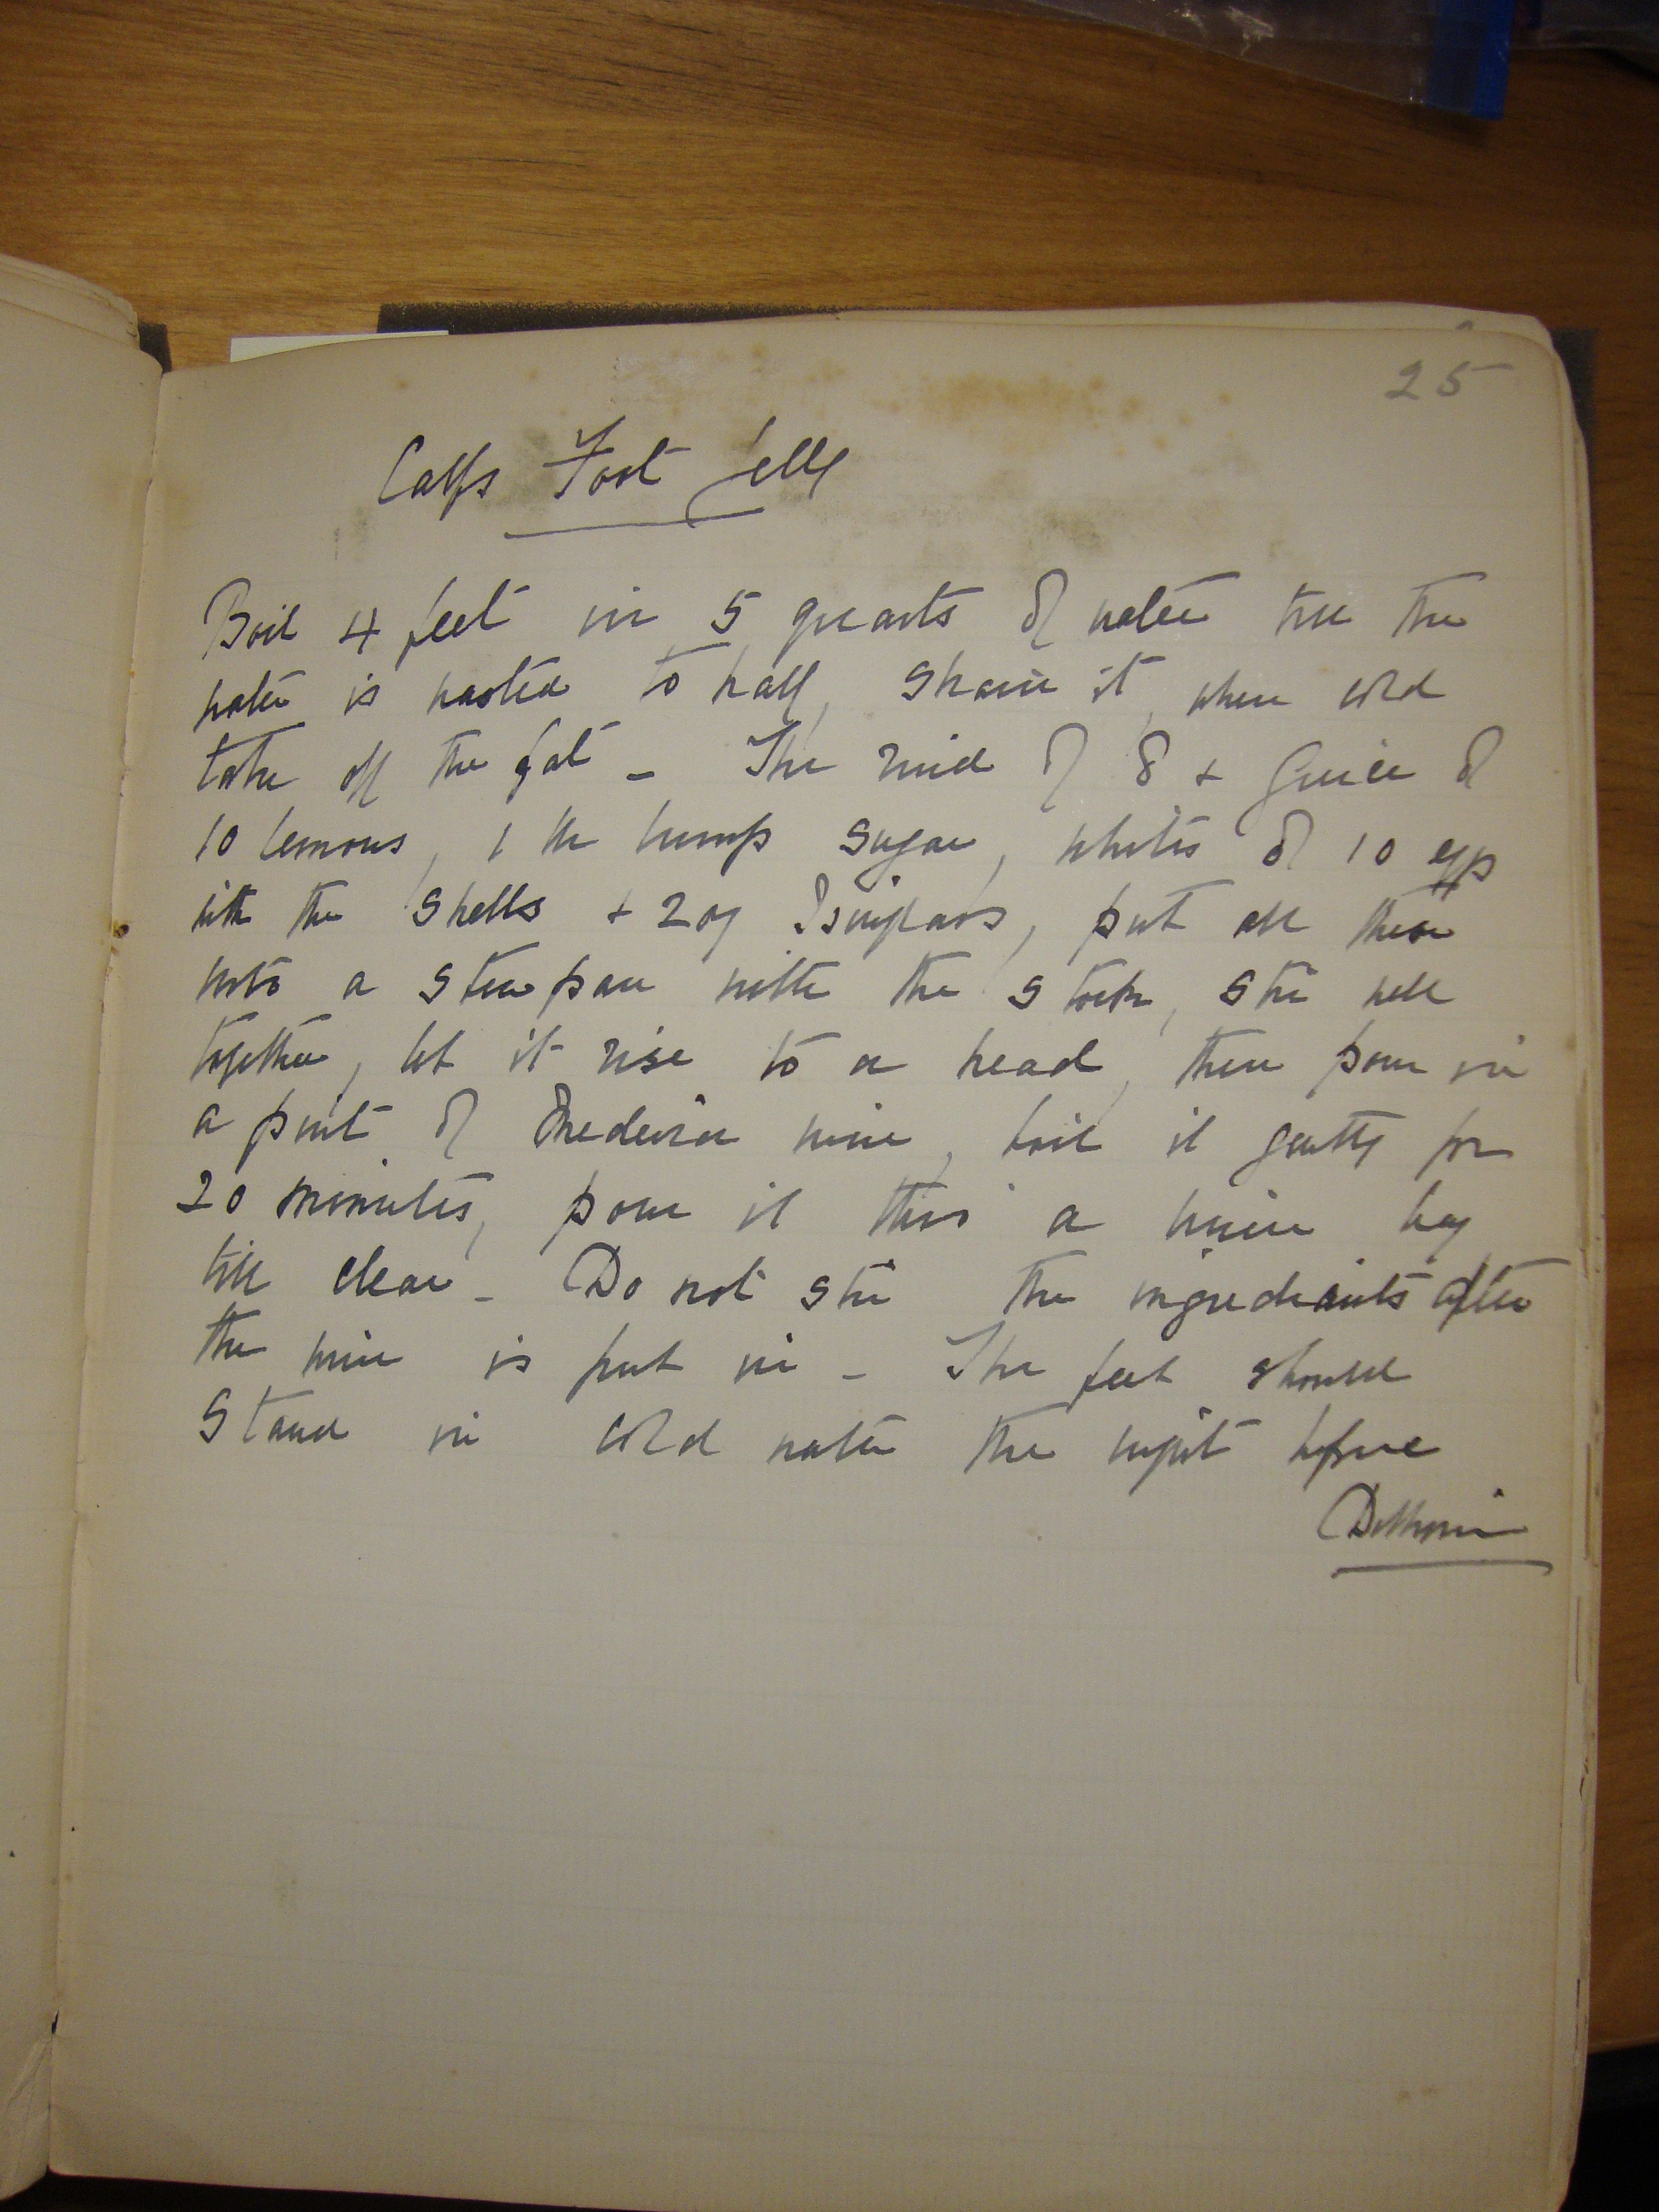 25
Calfs Foot Jelly
Boil 4 feet in 5 quarts of water till the
water is wasted to half, strain it, when cold
take off the fat - The rind of 8 + Juice of
10 lemons, 1 lb lump sugar, whites of 10 eggs
with the shells + 2 oz Isinglass, put all these
into a stew pan with the stock, stir well
together, let it rise to a head, then pour in
a pint of Madeira wine, boil it gently for
20 minutes, pour it thro' a linen bag
till clear - Do not stir the ingredients after
the wine is put in - The feet should
stand in cold water the night before